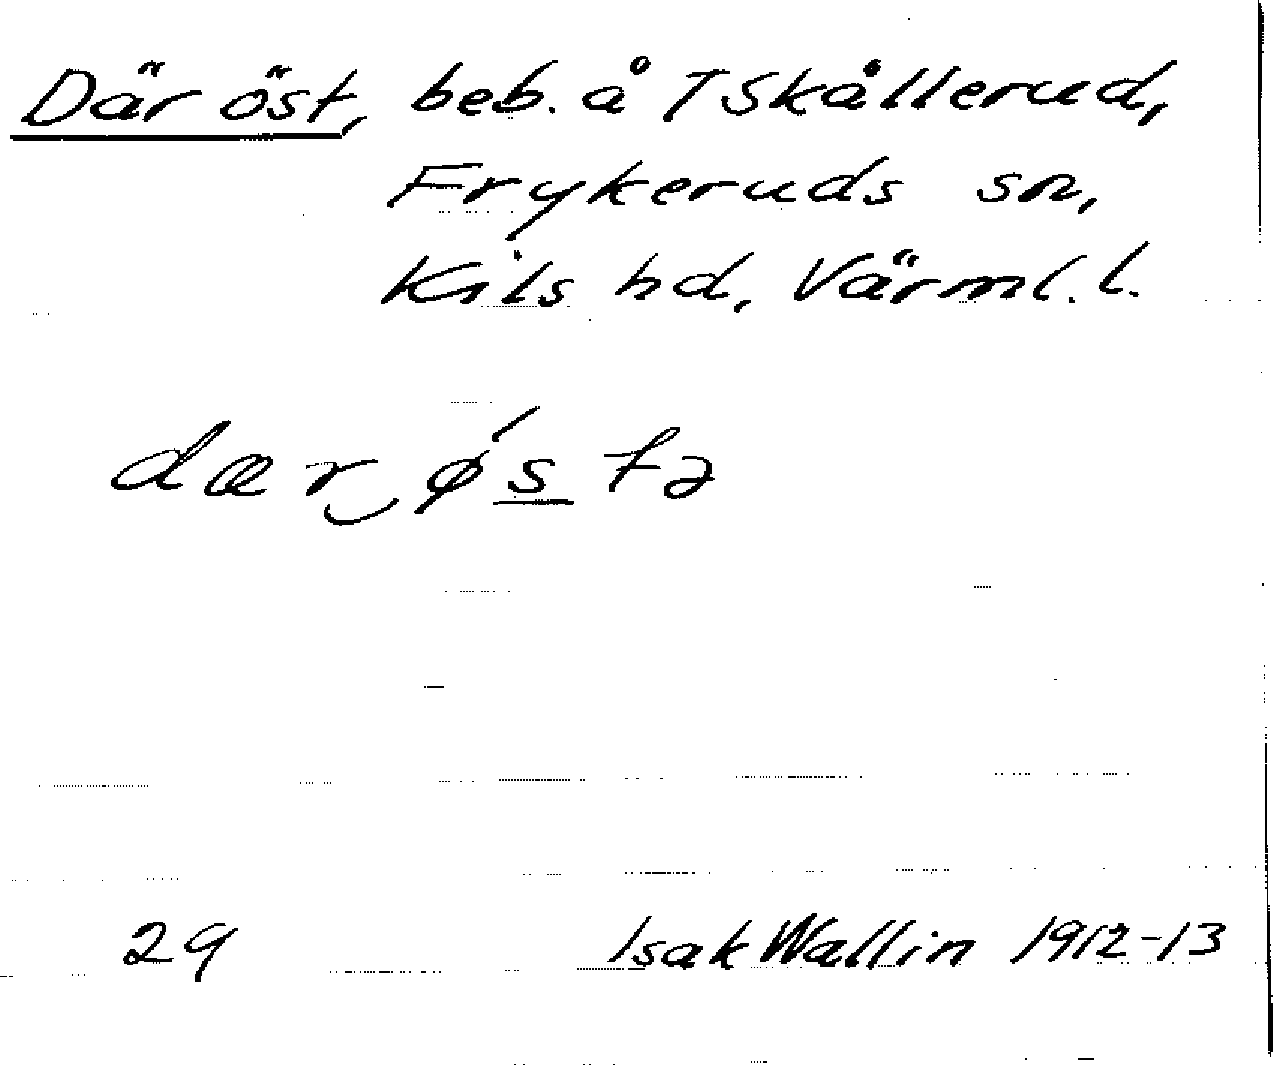 Där öst, beb. å Tskållerud,
Frykeruds sn,
Kils hd, Värml. l.
dær‿ǿs̲tə
29 Isak Wallin 1912-13